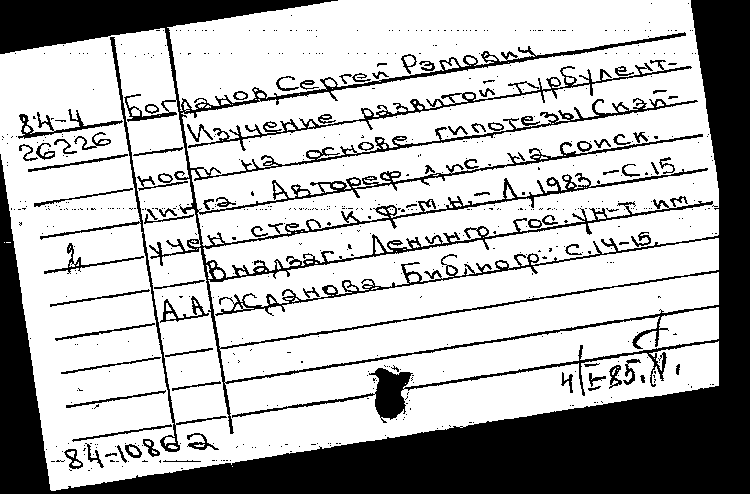 84-4
26226
Богданов, Сергей Рэмович
Изучение развитой турбулент-
ности на основе гипотезы Скэй-
линга: Автореф. дис. на соиск.
учен. степ. к.ф.-м.н. - Л., 1983. - С.15.
В надзаг.: Ленингр. гос. ун-т им.
А.А. Жданова. Библиогр.: с.14-15.
4/I-85.
84-10862